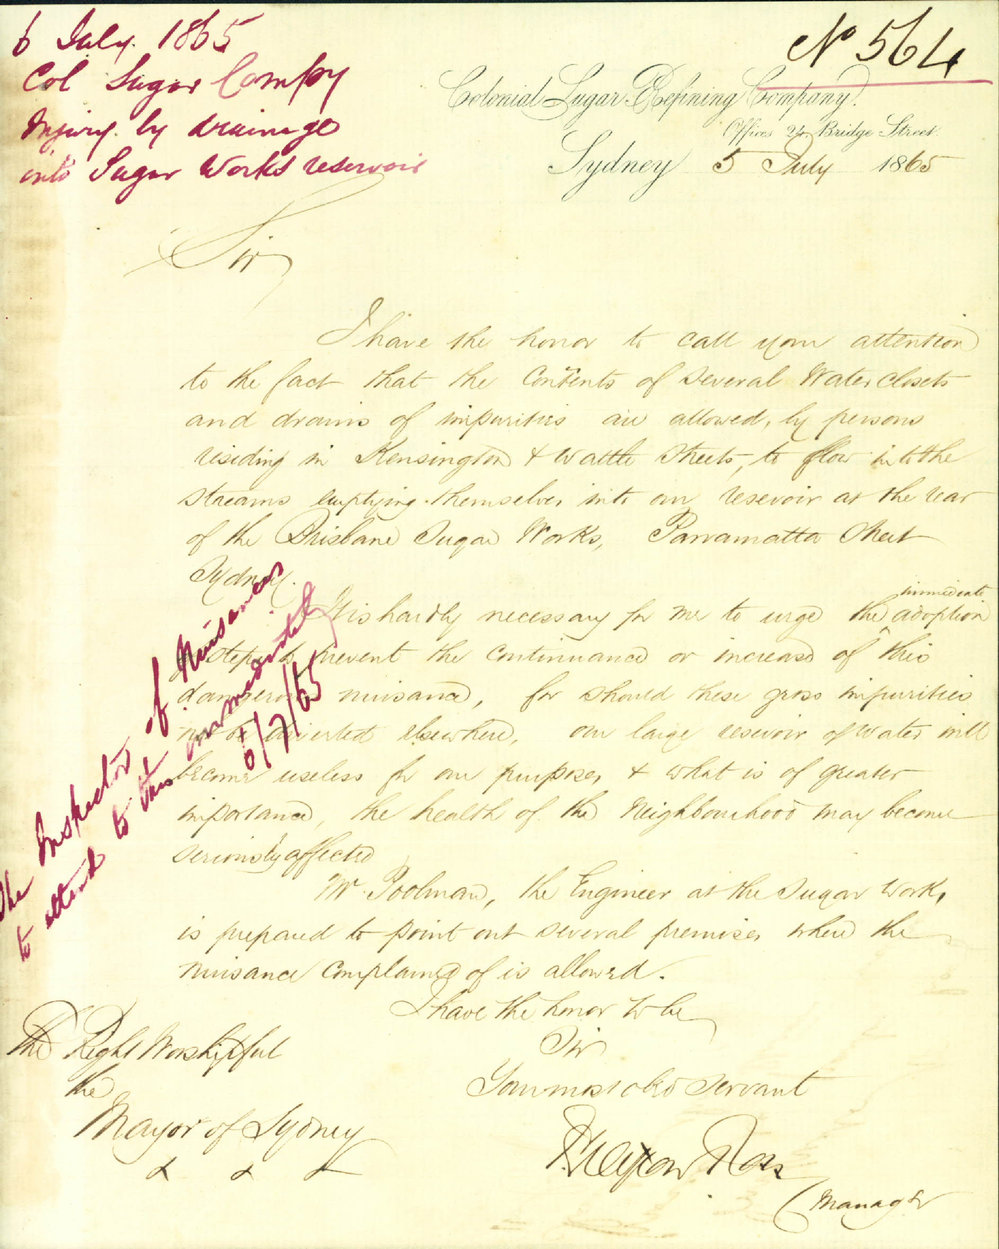 6 July. 1865
Col Sugar Compy
Injury by drainage
into Sugar Works reservoir
No 564
Colonial Sugar Refining Company.
Offices 24 Bridge Street.
Sydney 5 July 1865
Sir
I have the honor to call your attention
to the fact that the contents of several Water closets
and drains of impurities are allowed, by persons
residing in Kensington & Wattle Streets, to flow into the
streams emptying themselves into our reservoir at the rear
of the Brisbane Sugar Works, Parramatta Street
Sydney.
It is hardly necessary for me to urge the immediate adoption
of steps to prevent the continuance or increase of this
dangerous nuisance, for should these gross impurities
not be diverted elsewhere, our large resevoir of water will
become useless for our purposes, & what is of greater
importance, the health of the Neighbourhood may become
seriously affected
Mr. Poolman, the Engineer at the Sugar Works,
is prepared to point out several premises where the
nuisance complained of is allowed.
I have the honor to be
Sir
Your most obd Servant
Ross
(Manager
The Right Worshipful
the
Mayor of Sydney
The Inspector of Nuisances
to attend to this immediately
6/7/65